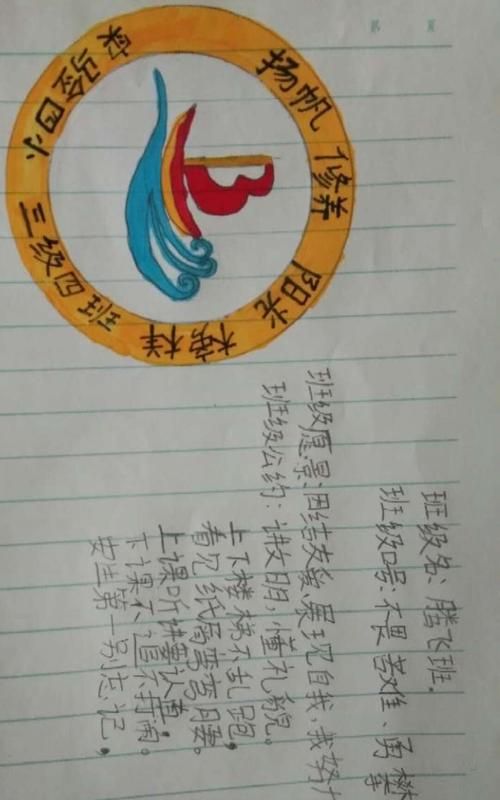 第 页
扬帆 修养 阳光 榜样
实验四小 三级四班
班级名：腾飞班.
班级口号：不畏苦难、勇攀
班级愿景：团结友爱、展现自我，我努力
班级公约：讲文明，懂礼貌。
上下楼梯不乱跑，
看见纸屑弯弯腰。
上课听讲要认真，
下课不追不打闹。
安全第一别忘记，